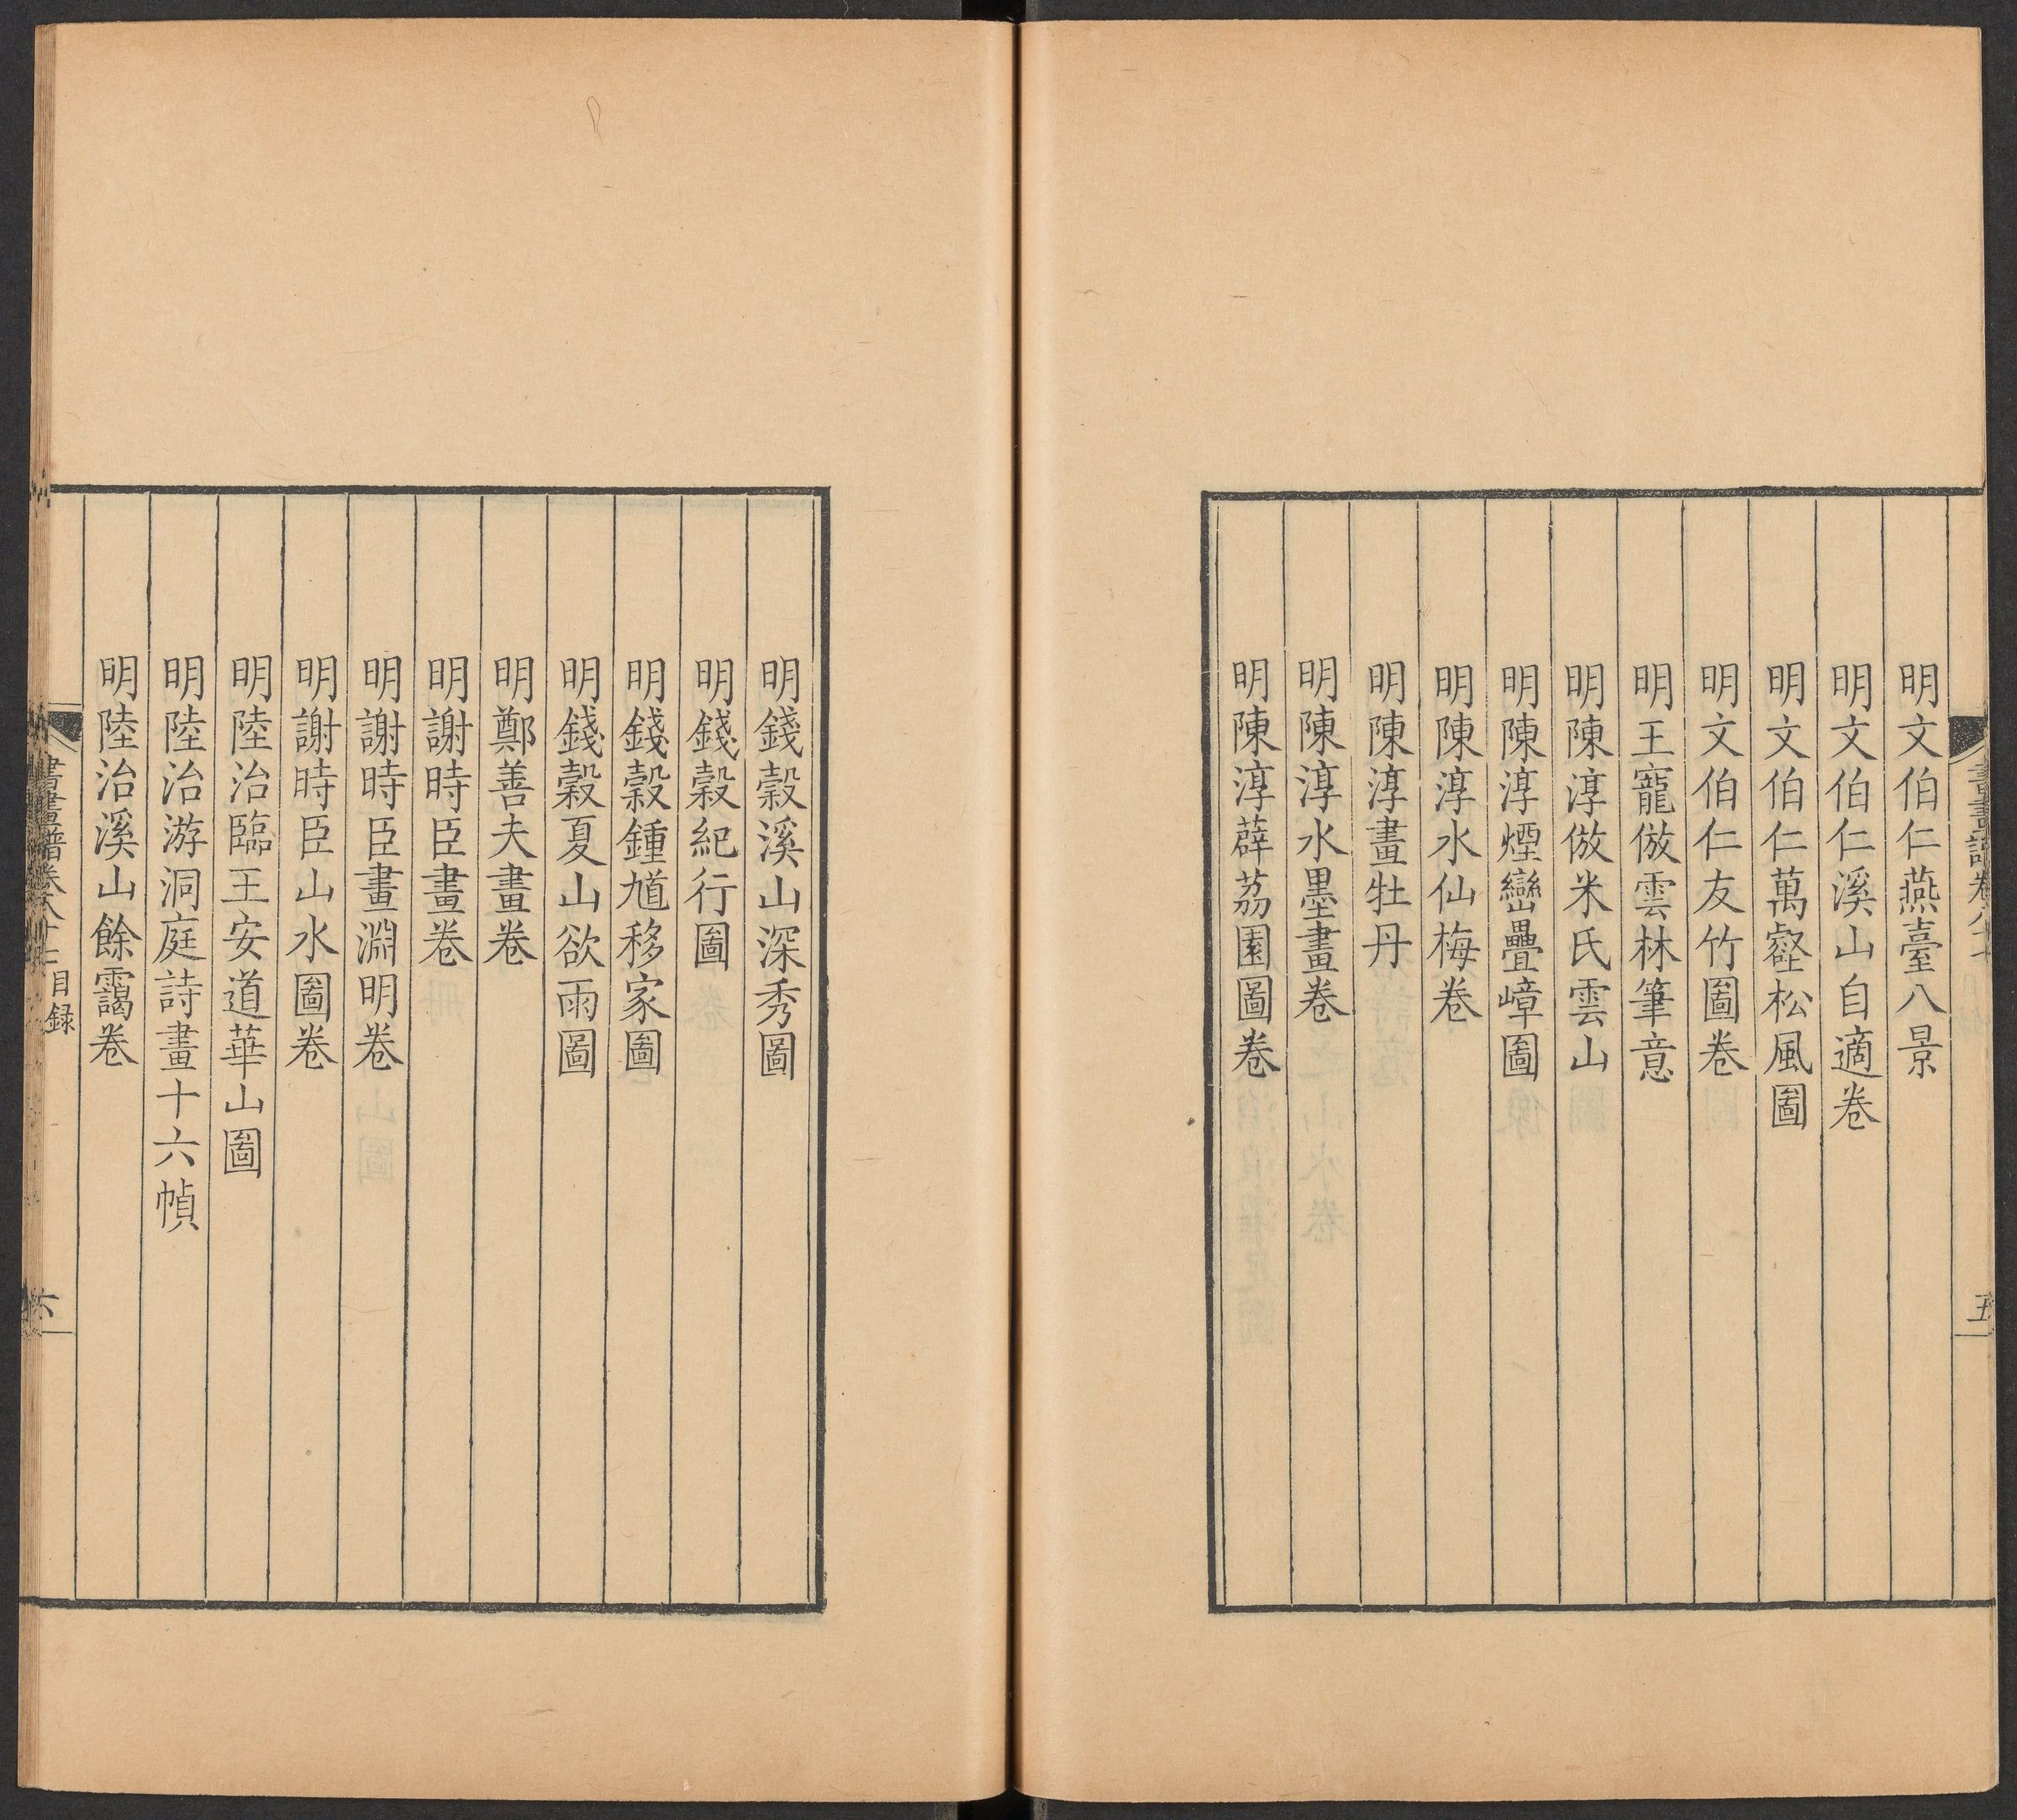 明文伯仁燕臺八景
明文伯仁溪山自適卷
明文伯仁萬壑松風圖
明文伯仁友竹圖卷
明王寵倣雲林筆意
明陳淳倣米氏雲山
明陳淳煙巒疊嶂圖
明陳淳水仙梅卷
明陳淳畫牡丹
明陳淳水墨畫卷
明陳淳薜荔園圖卷
明錢穀溪山深秀圖
明錢穀紀行圖
明錢穀鍾馗移家圖
明錢穀夏山欲雨圖
明鄭善夫畫卷
明謝時臣畫卷
明謝時臣畫淵明卷
明謝時臣山水圖卷
明陸治臨王安道華山圖
明陸治游洞庭詩畫十六幀
明陸治溪山餘靄卷
書畫譜卷八十七目録
六